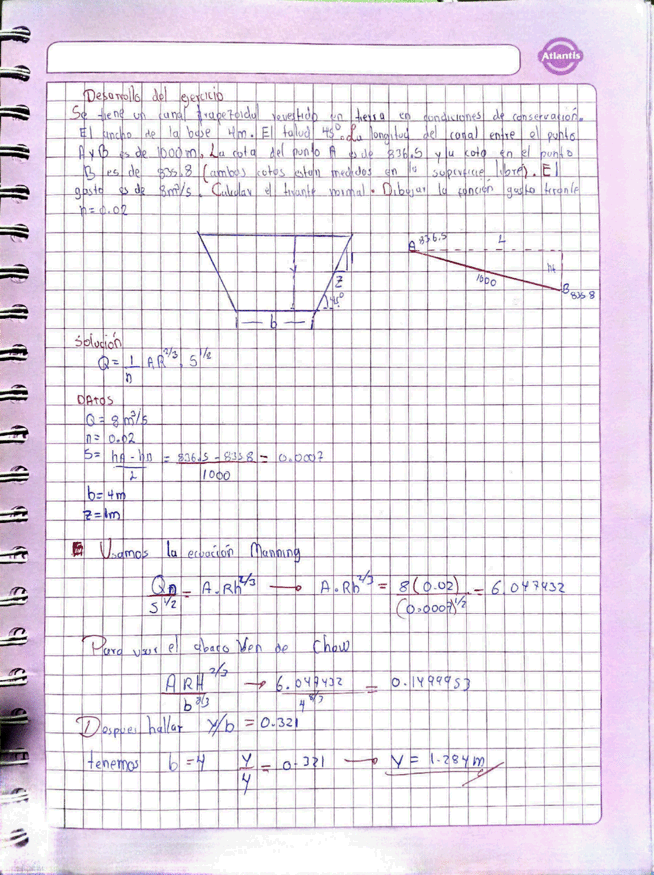 Atlantis
Desarrollo del ejercicio
Se tiene un canal trapezoidal revestido en tierra en condiciones de conservación.
El ancho de la base 4m. El talud 45°. La longitud del canal entre el punto
A y B es de 1000m. La cota del punto A es de 836.5 y la cota en el punto
B es de 835.8 (ambos cotas estan medidos en la superficie libre). El
gasto es de 8m³/s. Calcular el tirante normal. Dibujar la función gasto tirante
n=0.02
A 836.5 L
z
45°
b
1000
B 835.8
Solución
Q = 1/n AR^2/3 . S^1/2
DATOS
Q = 8 m³/s
n = 0.02
S = hA - hB / L = 836.5 - 835.8 / 1000 = 0.0007
b = 4m
z = 1m
Usamos la ecuación Manning
Qn / S^1/2 = A.Rh^2/3 → A.Rh^2/3 = 8(0.02) / (0.0007)^1/2 = 6.047432
Para usar el abaco Ven de Chow
ARH^2/3 / b^8/3 → 6.047432 / 4^8/3 = 0.1499953
Despues hallar Y/b = 0.321
tenemos b = 4 Y/4 = 0.321 → Y = 1.284m